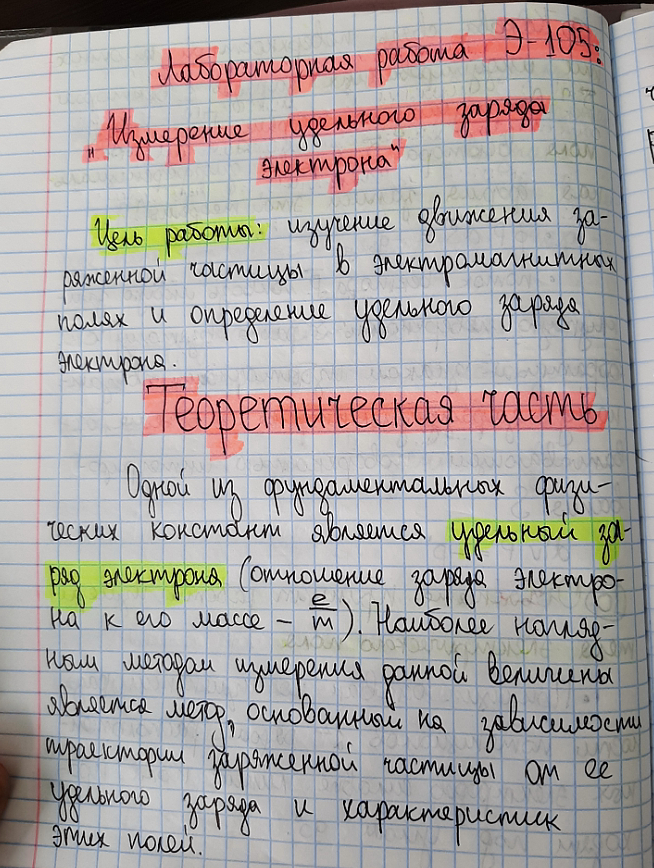 Лабораторная работа Э-105:
"Измерение удельного заряда
электрона"
Цель работы: изучение движения за-
ряженной частицы в электромагнитных
полях и определение удельного заряда
электрона.
Теоретическая часть
Одной из фундаментальных физи-
ческих констант является удельный за-
ряд электрона (отношение заряда электро-
на к его массе - e/m). Наиболее нагляд-
ным методом измерения данной величены
является метод, основанный на зависимости
траектории заряженной частицы от ее
удельного заряда и характеристик
этих полей.